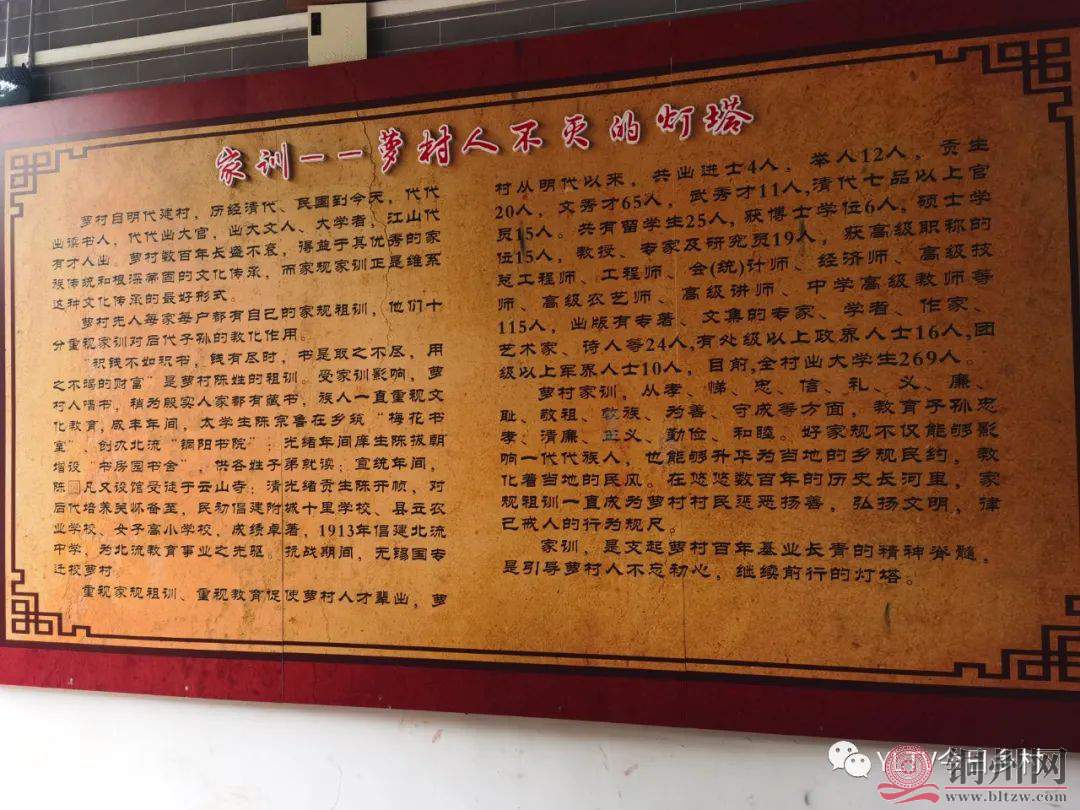 家训——萝村人不灭的灯塔
萝村自明代建村，历经清代、民国到今天，代代
出读书人，代代出大官，出大文人、大学者，江山代
有才人出。萝村数百年长盛不衰，得益于其优秀的家
族传统和根深蒂固的文化传承，而家规家训正是维系
这种文化传承的最好形式。
萝村先人每家每户都有自己的家规祖训，他们十
分重视家训对后代子孙的教化作用。
“积钱不如积书，钱有尽时，书是取之不尽，用
之不竭的财富”是萝村陈姓的祖训。受家训影响，萝
村人嗜书，稍为殷实人家都有藏书，族人一直重视文
化教育，咸丰年间，太学生陈宗鲁在乡筑“梅花书
室”创办北流“铜阳书院”；光绪年间庠生陈拔朝
增设“书房园书舍”，供各姓子弟就读；宣统年间，
陈凡又设馆受徒于云山寺；清光绪贡生陈开帧，对
后代培养关怀备至，民初倡建附城十里学校、县立农
业学校、女子高小学校，成绩卓著，1913年倡建北流
中学，为北流教育事业之先驱。抗战期间，无锡国专
迁校萝村。
重视家规祖训、重视教育促使萝村人才辈出，萝
村从明代以来，共出进士4人，举人12人，贡生
20人，文秀才65人，武秀才11人，清代七品以上官
员15人。共有留学生25人，获博士学位6人，硕士学
位15人，教授、专家及研究员19人，获高级职称的
总工程师、工程师、会(统)计师、经济师、高级技
师、高级农艺师、高级讲师、中学高级教师等
115人，出版有专著、文集的专家、学者、作家、
艺术家、诗人等24人，有处级以上政界人士16人，团
级以上军界人士10人，目前，全村出大学生269人。
萝村家训，从孝、悌、忠、信、礼、义、廉、
耻、敬祖、敦族、为善、守成等方面，教育子孙忠
孝、清廉、正义、勤俭、和睦。好家规不仅能够影
响一代代族人，也能够升华为当地的乡规民约，教
化着当地的民风。在悠悠数百年的历史长河里，家
规祖训一直成为萝村村民惩恶扬善，弘扬文明，律
己戒人的行为规尺。
家训，是支起萝村百年基业长青的精神脊髓，
是引导萝村人不忘初心，继续前行的灯塔。
YLTV今日乡村
铜州网
www.bltzw.com